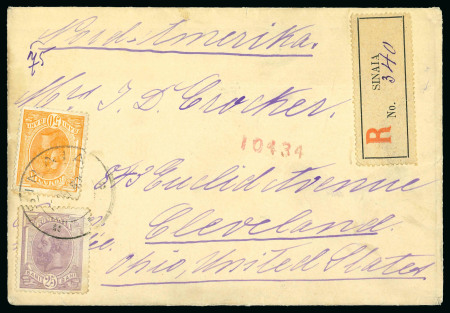 Nord-Amerika.
75
Mrs. J. D. Crocker.
SINAIA
R No. 340
10434
Euclid Avenue
Cleveland.
Ohio, United States
50
BANI 25 BANI